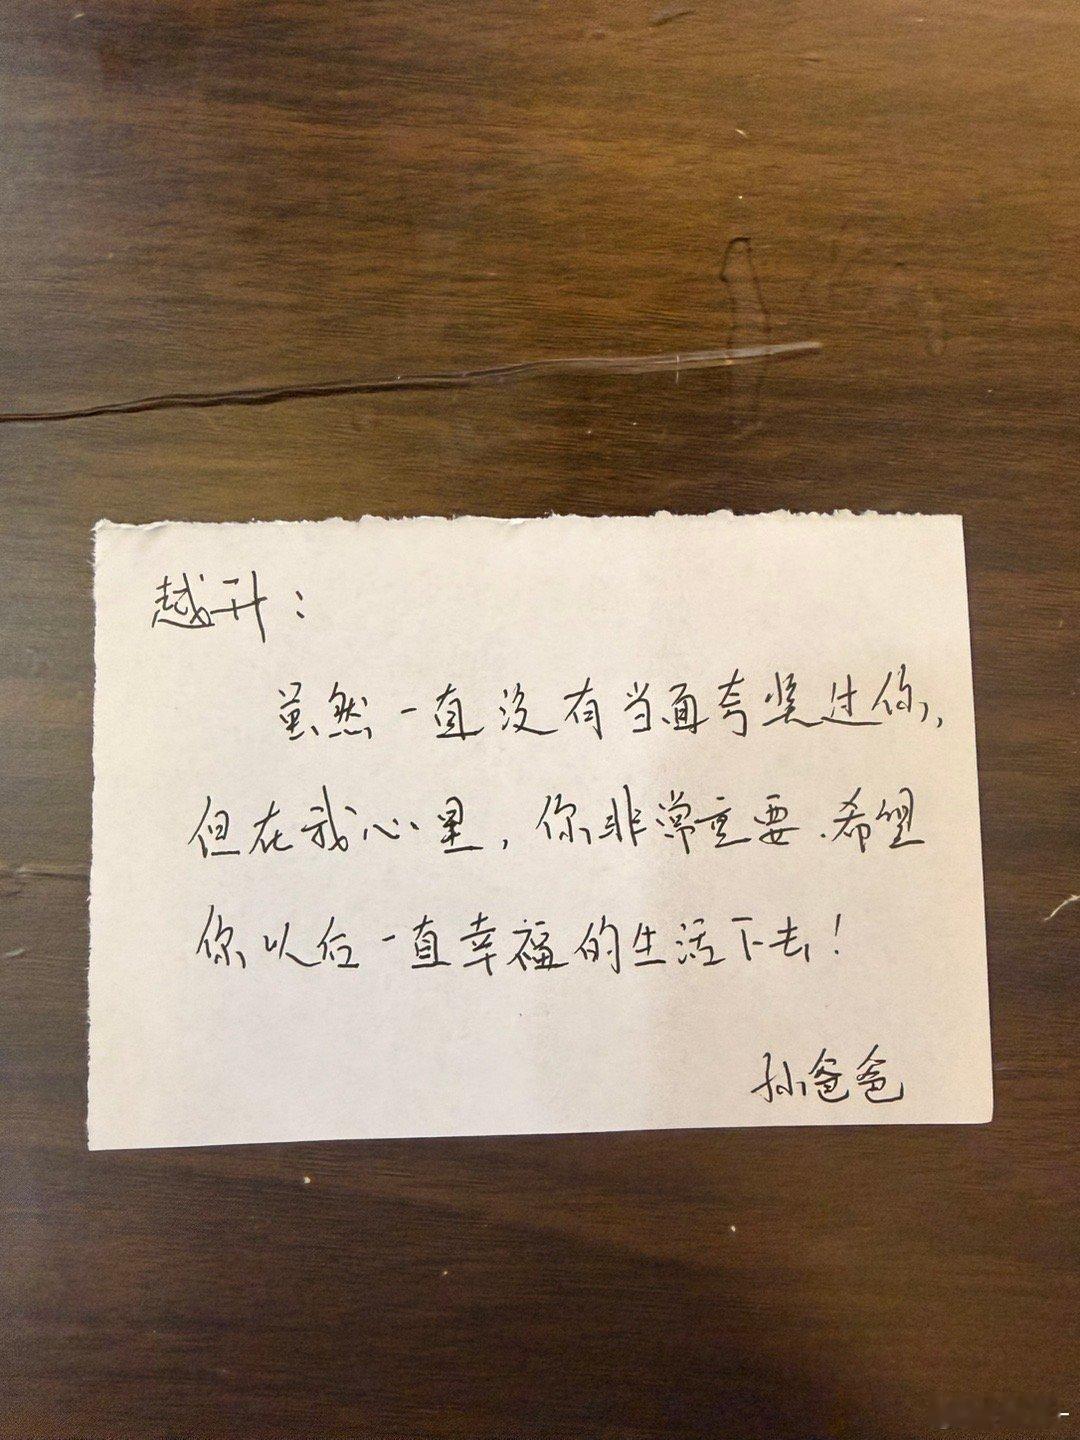 越升：
虽然一直没有当面夸奖过你，
但在我心里，你非常重要.希望
你以后一直幸福的生活下去！
孙爸爸